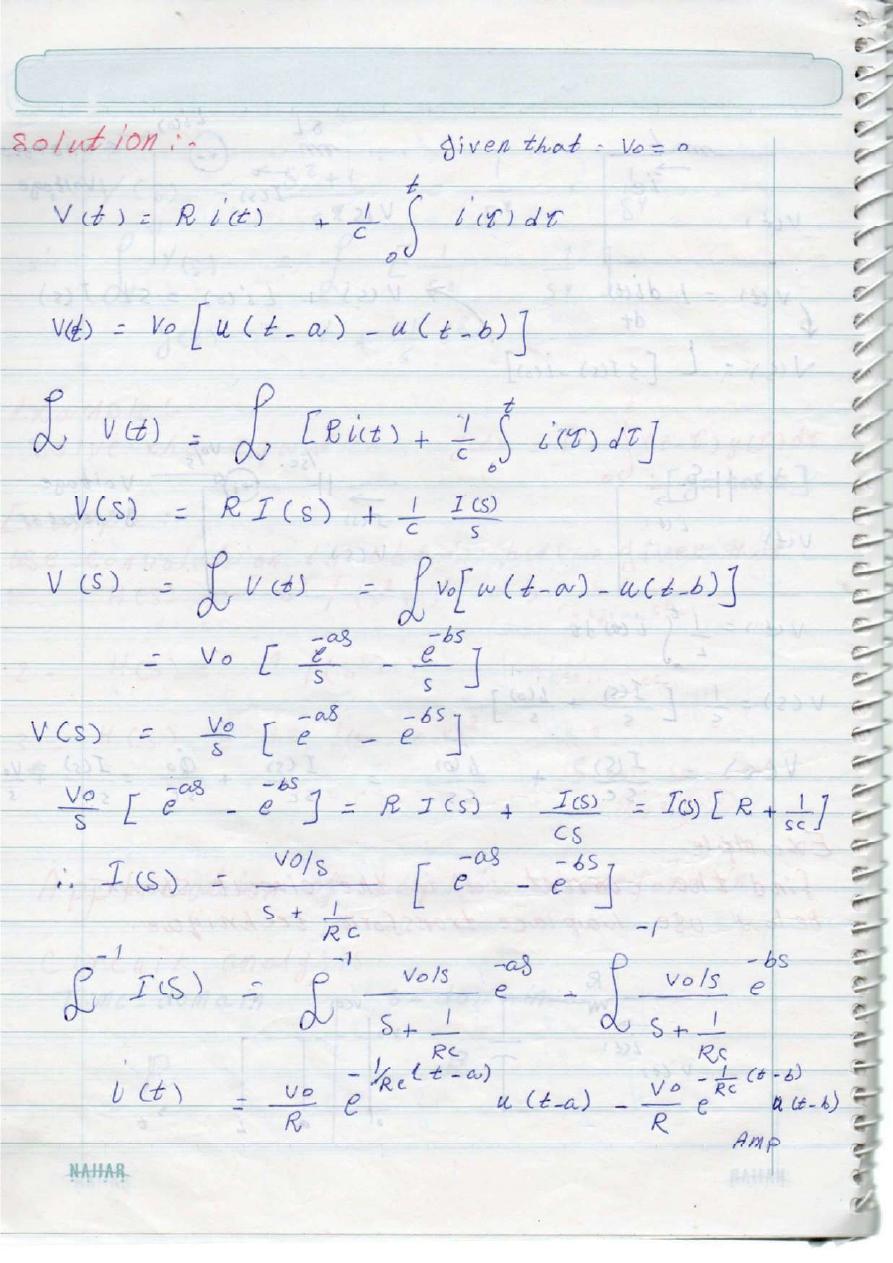 Solution :-    given that - Vo = 0
V(t) = R i(t) + 1/C ∫₀ᵗ i(τ) dτ
V(t) = Vo [ u(t-a) - u(t-b) ]
ℒ V(t) = ℒ [ R i(t) + 1/C ∫₀ᵗ i(τ) dτ ]
V(s) = R I(s) + 1/C I(s)/s
V(s) = ℒ V(t) = ℒ Vo [ u(t-a) - u(t-b) ]
= Vo [ e^-as/s - e^-bs/s ]
V(s) = Vo/s [ e^-as - e^-bs ]
Vo/s [ e^-as - e^-bs ] = R I(s) + I(s)/CS = I(s) [ R + 1/SC ]
∴ I(s) = (Vo/s)/(s + 1/RC) [ e^-as - e^-bs ]
ℒ^-1 I(s) = ℒ^-1 (Vo/s)/(s + 1/RC) e^-as - ℒ^-1 (Vo/s)/(s + 1/RC) e^-bs
i(t) = Vo/R e^-1/RC(t-a) u(t-a) - Vo/R e^-1/RC(t-b) u(t-b)
Amp
NAHAR